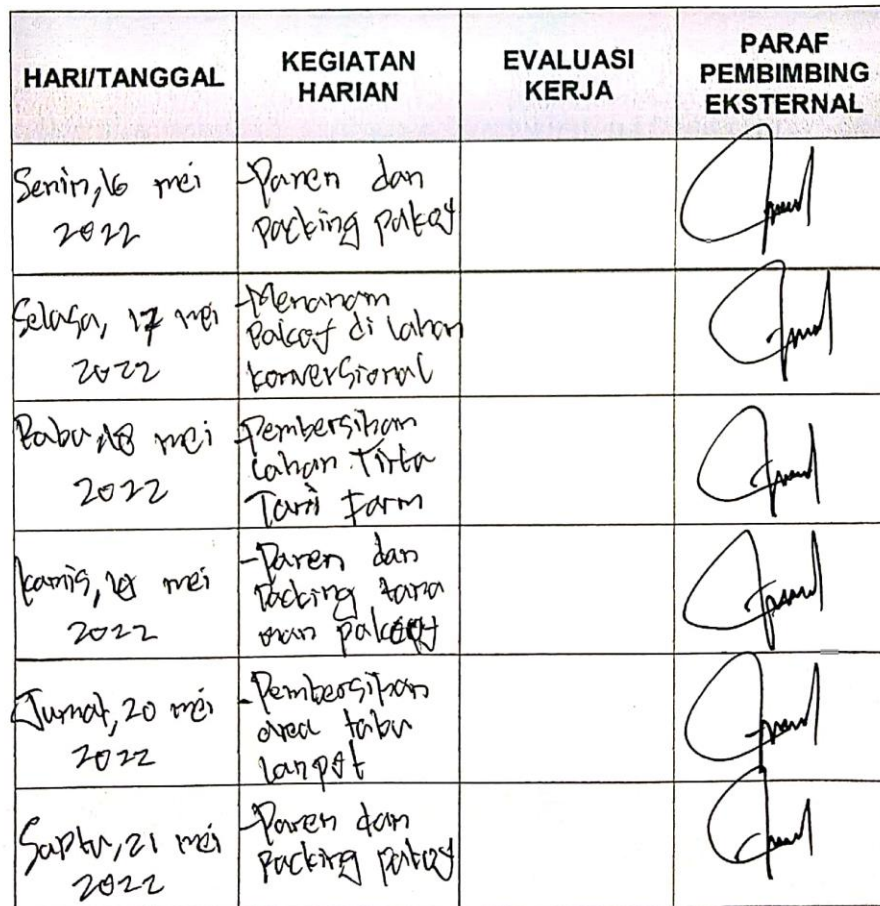 HARI/TANGGAL
KEGIATAN
HARIAN
EVALUASI
KERJA
PARAF
PEMBIMBING
EKSTERNAL
Senin, 16 mei
2022
-Panen dan
packing pakcoy
Selasa, 17 mei
2022
-Menanam
Pakcoy di lahan
konversional
Rabu, 18 mei
2022
-Pembersihan
lahan Tirta
Tani Farm
kamis, 19 mei
2022
-Panen dan
Packing tana
man pakcoy
Jumat, 20 mei
2022
-Pembersihan
area tabu
lanpot
Saptu, 21 mei
2022
-Panen dan
packing pakcoy